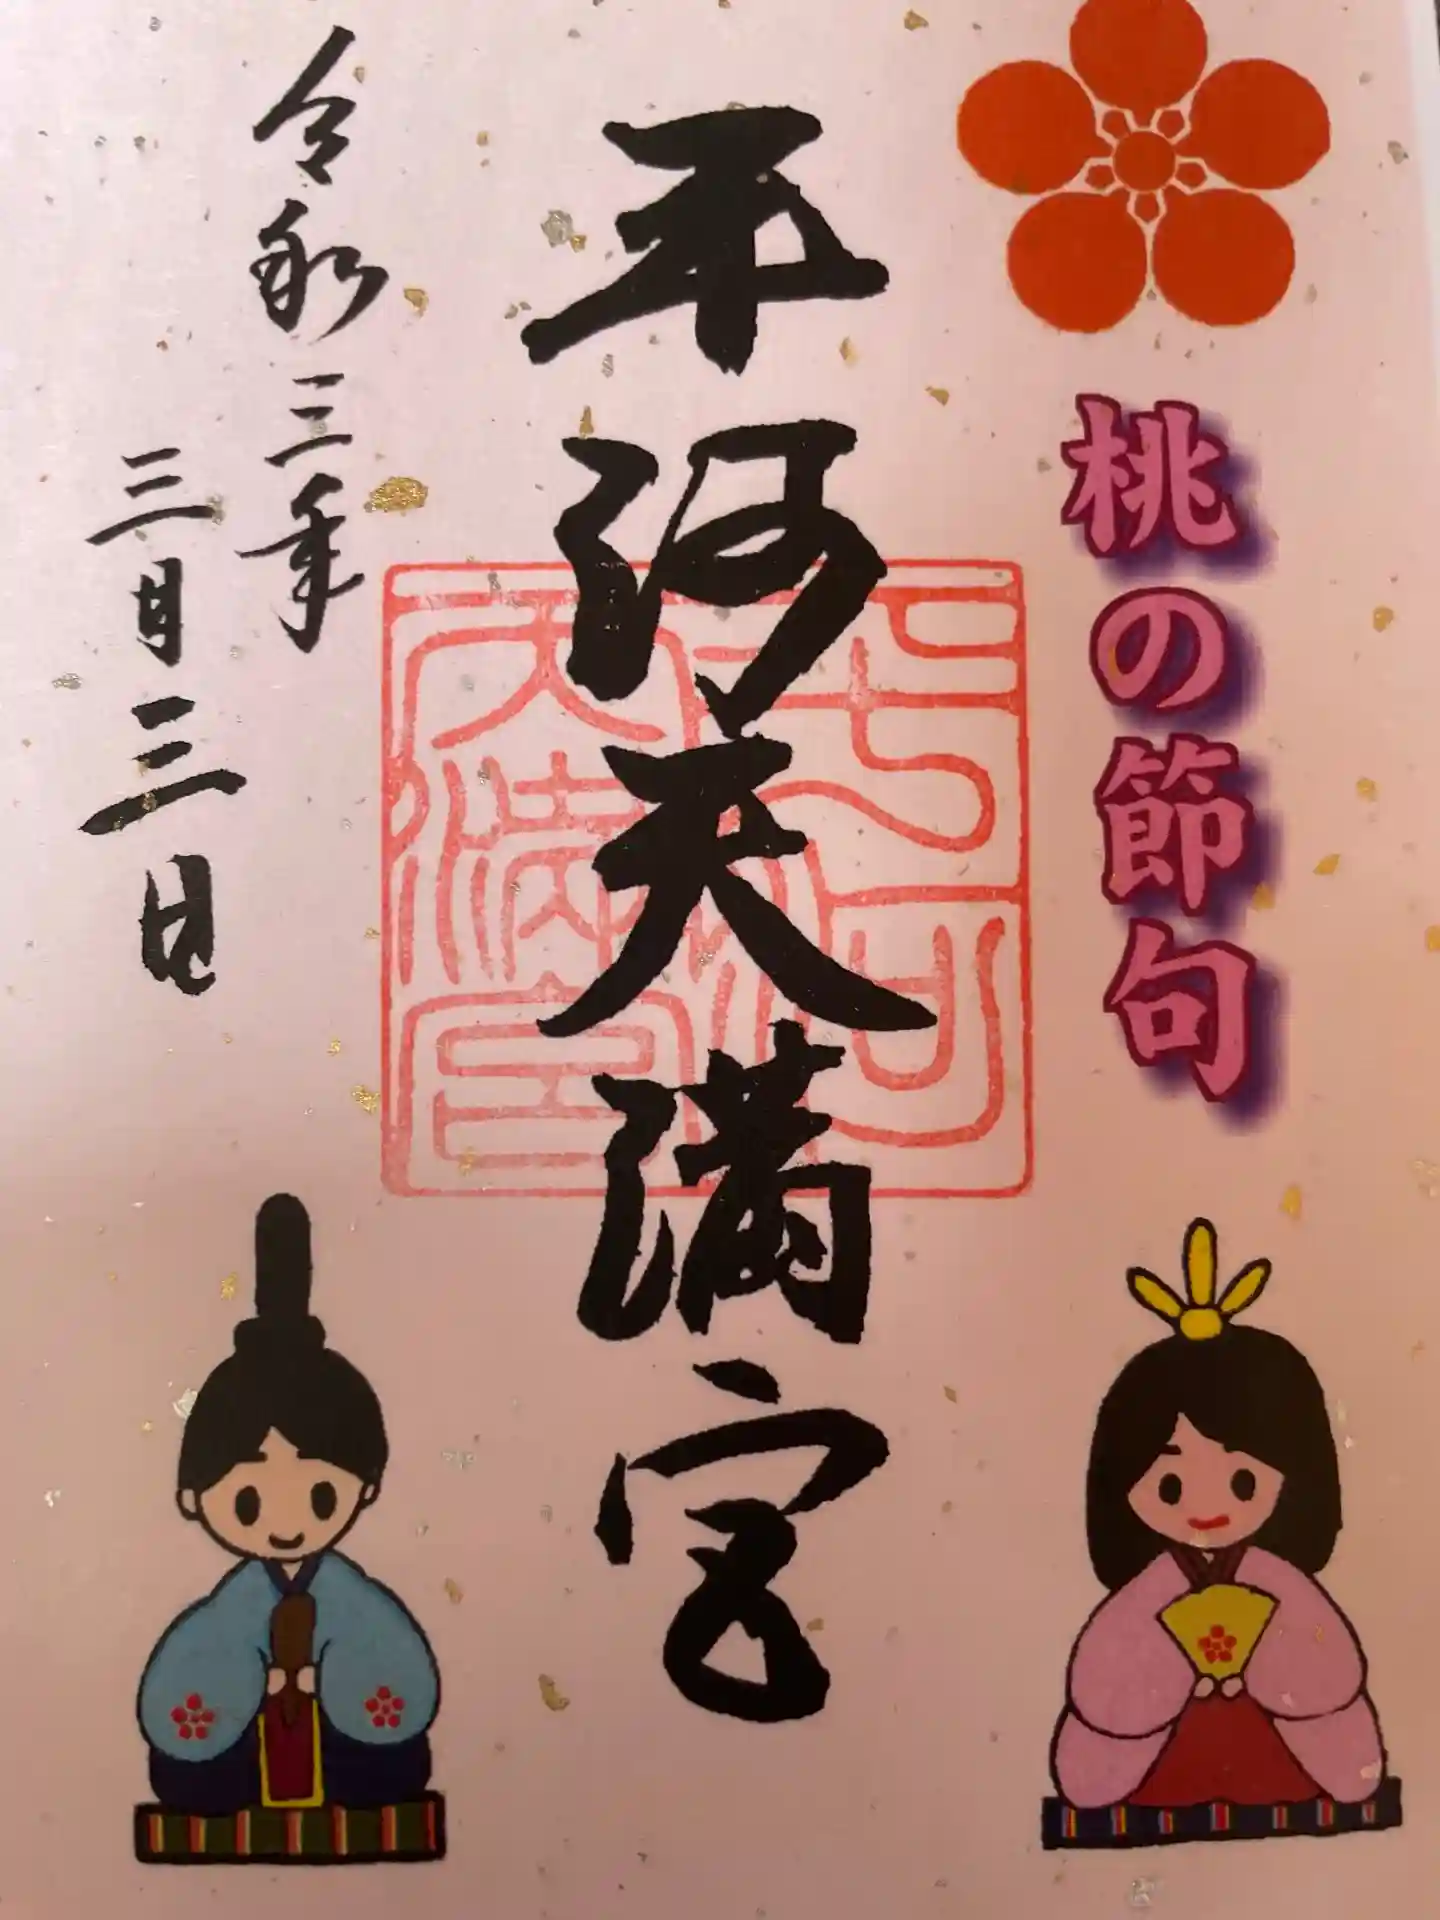 桃の節句
平河天満宮
平河
天満宮
令和三年
三月三日